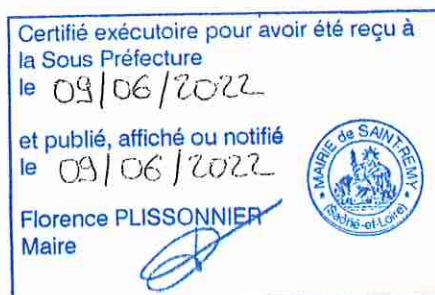 Certifié exécutoire pour avoir été reçu à
la Sous Préfecture
le 09/06/2022
et publié, affiché ou notifié
le 09/06/2022
Florence PLISSONNIER
Maire
★ MAIRIE de SAINT-REMY ★
(Saône-et-Loire)